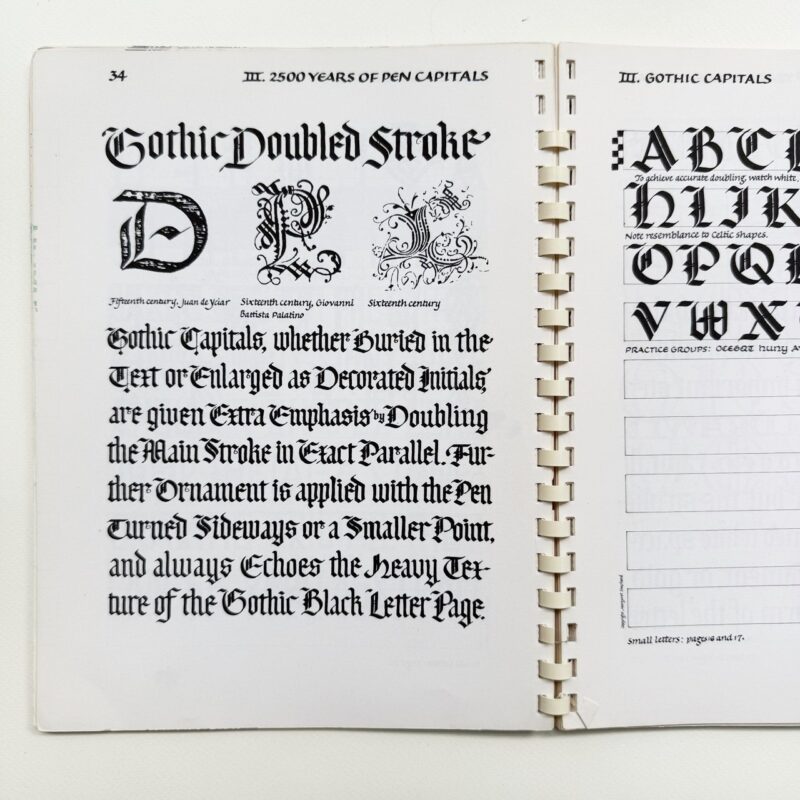 34
III. 2500 YEARS OF PEN CAPITALS
Gothic Doubled Stroke
D P L
Fifteenth century, Juan de Yciar
Sixteenth century, Giovanni
Battista Palatino
Sixteenth century
Gothic Capitals, whether Buried in the
Text or Enlarged as Decorated Initials,
are given Extra Emphasis by Doubling
the Main Stroke in Exact Parallel. Fur-
ther Ornament is applied with the Pen
Turned Sideways or a Smaller Point,
and always Echoes the Heavy Tex-
ture of the Gothic Black Letter Page.
III. GOTHIC CAPITALS
A B C
To achieve accurate doubling, watch white
H I J K
Note resemblance to Celtic shapes.
O P Q
V W X
PRACTICE GROUPS: OCEGQT HUNY
Small letters: pages 16 and 17.